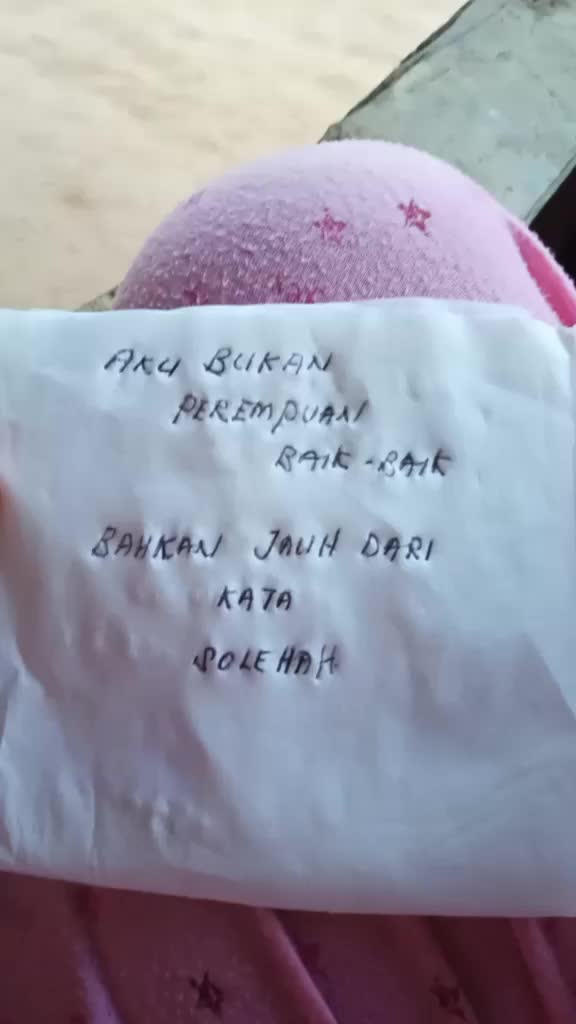 AKU BUKAN
PEREMPUAN
BAIK-BAIK
BAHKAN JAUH DARI
KATA
SOLEHAH